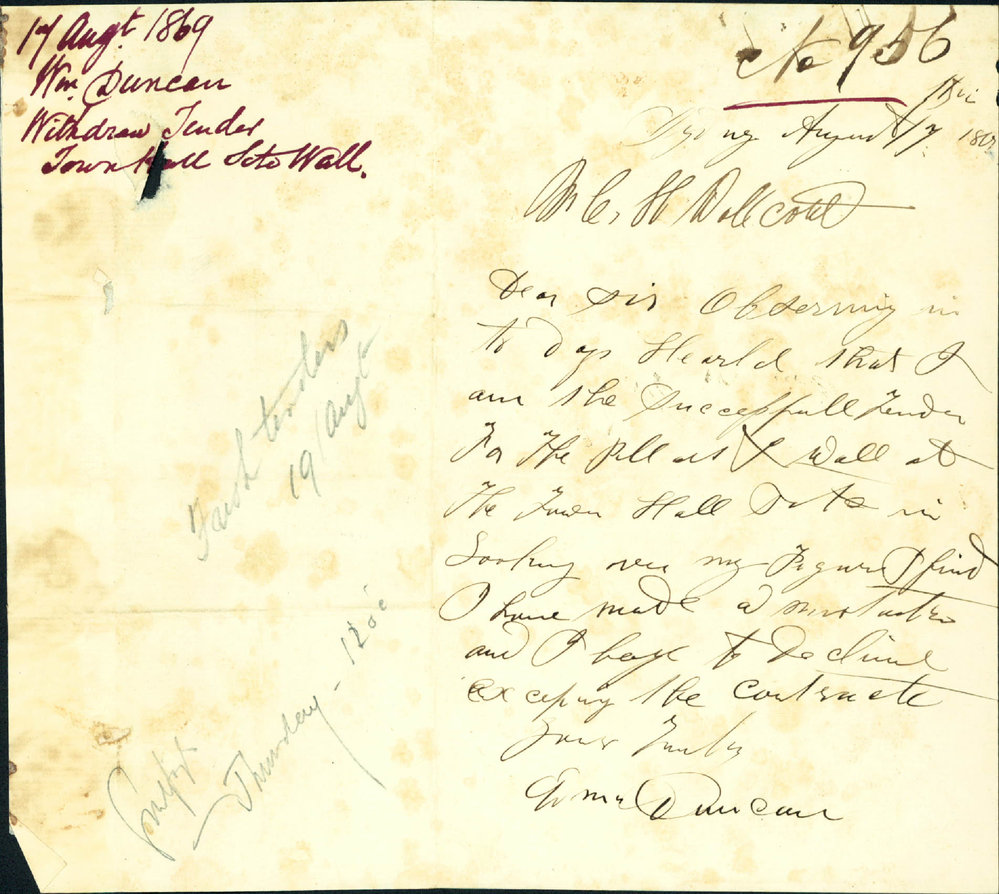 17 Augt. 1869
Wm. Duncan
Withdraw Tender
Town Hall Site Wall.
No 956
Sydney August 17 186
Mr C. H. Wollcott
Dear Sir Observing in
to days Hearld that I
am the Successfull Tender
For the Pillars & Wall at
The Town Hall Site in
Looking over my Figures I find
I have made a
and I bege to Decline
exceping the contracte
Yours Truly
Duncan
Fresh tenders
19/Augt
Thursday - 12 oc